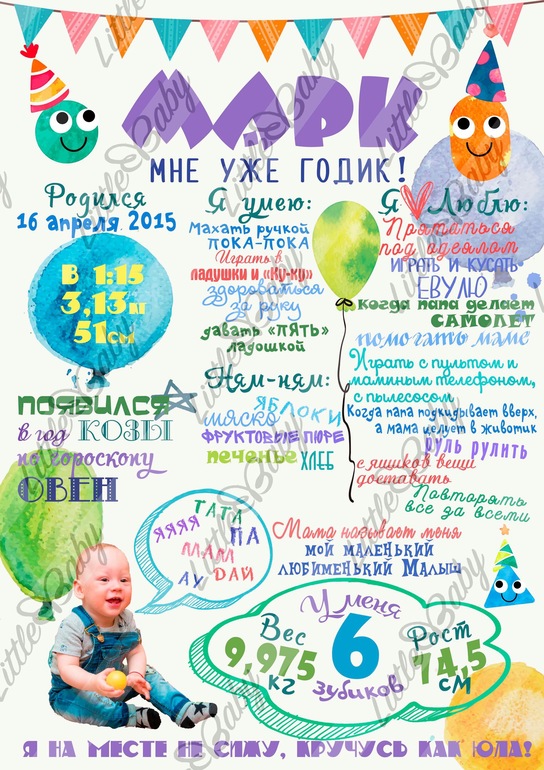 МАРК
МНЕ УЖЕ ГОДИК!
Родился
16 апреля 2015
В 1:15
3,13кг
51см
ПОЯВИЛСЯ
в год КОЗЫ
по гороскопу
ОВЕН
Я умею:
Махать ручкой
ПОКА-ПОКА
Играть в
ладушки и «Ку-ку»
здороваться
за руку
давать «ПЯТЬ»
ладошкой
Ням-ням:
ЯБЛОКИ
мяско
ФРУКТОВЫЕ ПЮРЕ
печенье ХЛЕБ
Я Люблю:
Прятаться
под одеялом
ИГРАТЬ И КУСАТЬ
ЕВУЛЮ
Когда папа делает
САМОЛЕТ
помогать маме
Играть с пультом и
маминым телефоном,
с пылесосом
Когда папа подкидывает вверх,
а мама целует в животик
РУЛЬ РУЛИТЬ
с ящиков вещи
доставать
Повторять
все за всеми
ТАТА
ЯЯЯЯ ПА
МАМ
АУ ДАЙ
Мама называет меня
МОЙ МАЛЕНЬКИЙ
ЛЮБИМЕНЬКИЙ МАЛЫШ
У меня
6
зубиков
Вес
9,975
кг
Рост
74,5
см
Я НА МЕСТЕ НЕ СИЖУ, КРУЧУСЬ КАК ЮЛА!
Little Baby